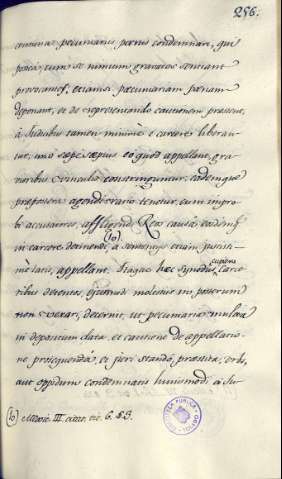 256.
communi pecuniariis poenis condemnari, qui
postea, cum se nimium gravatos sentiant
provocantes, etiamsi pecuniariam poenam
deponant, et de repraesentando cautionem praestent,
à Judicibus tamen minimè e carcere liberan-
tur, imò saepe saepius eò quod appellant, gra-
vioribus vinculis constringuntur, eademque
praeposterè agendi ratio tenetur, cum impro-
bi accusatores, affligendi Reos causâ, eosdemq.
in carcere detinendi, à sententiis etiam justissi-
(b)
mè latis, appellant. Itaque haec Synodus cupiens Carce-
ribus detentos, ejusmodi molestiis in posterum
non vexari, decernit, ut pecuniaria mulcta
in depositum data, et cautione de appellatio-
ne prosequenda, et juri stando praestita, urbe,
aut oppidum condemnatis hujusmodi à Ju-
(b) Mediol. III. citat. tit. 6. § 3.